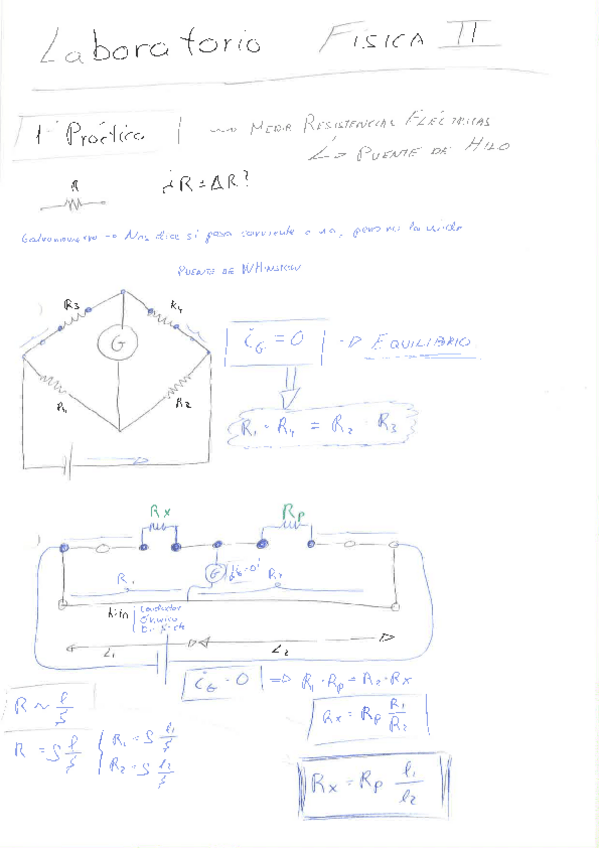 Laboratorio Física II
1ª Práctica → Medir Resistencias Eléctricas
↳ Puente de Hilo
R
¿R ± ΔR?
Galvanómetro → Nos dice si pasa corriente o no, pero no la mide
Puente de
R3 R4
G
R1 R2
iG = 0 → Equilibrio
R1 · R4 = R2 · R3
Rx Rp
G iG=0
R1 R2
hilo
Conductor
Óhmico
L1 L2
iG = 0 ⇒ R1 · Rp = R2 · Rx
R ~ l/S
Rx = Rp R1/R2
R = ρ l/S { R1 = ρ l1/S
R2 = ρ l2/S
Rx = Rp l1/l2